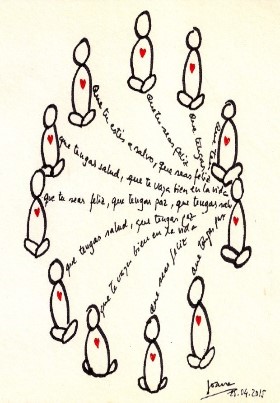 que tú estés a salvo, que seas feliz
que tu seas feliz
que tengas paz
que tengas salud, que te vaya bien en la vida
que tu seas feliz, que tengas paz, que tengas salud
que tengas salud, que tengas paz
que te vaya bien en la vida
que seas feliz
que tengas paz
Joana
15.04.2015